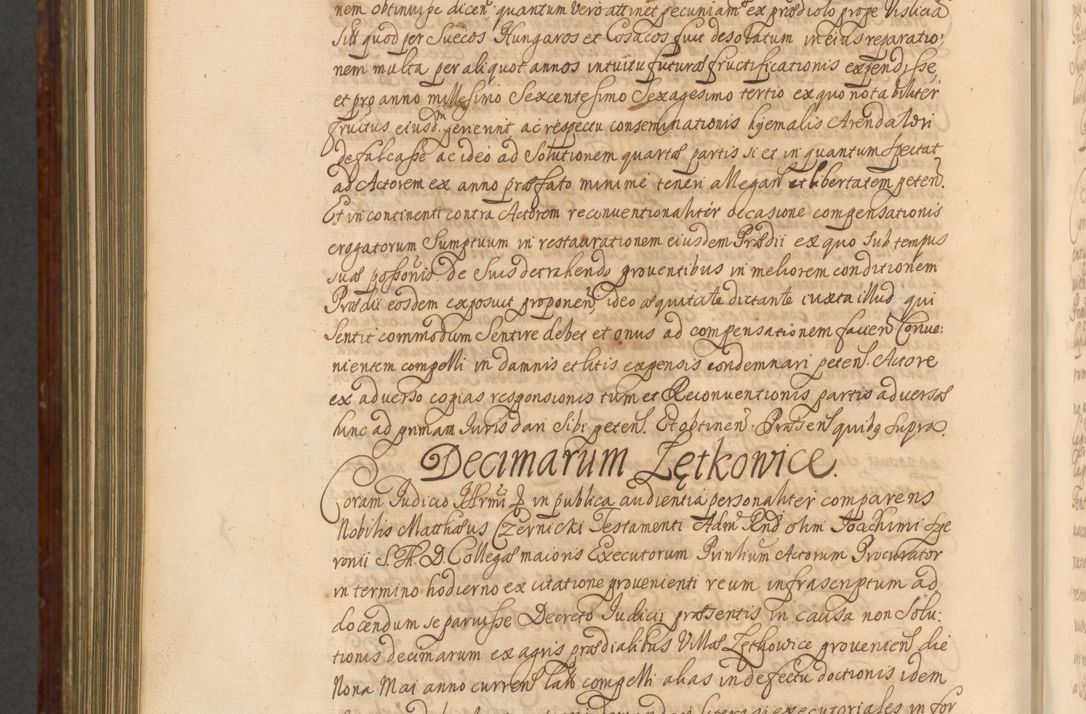 nem obtinuisse dicen. quantum vero attinet pecuniam ex prædiolo prope Vislicia
Sitt quod per Suecos Hungaros et Cosacos fuit desolatum in eius reparatio:
nem multa per aliquot annos intuitu futuræ fructificationis expendisse,
et pro anno millesimo Sexcentesimo Sexagesimo tertio ex quo notabiliter
fructus eiusdm perierint, ac respectu conseminationis hyemalis Arendatori
defalcasse ac ideo ad Solutionem quartæ partis si et in quantum spectat
ad Actorem ex anno præfato minime teneri allegan et libertatem peten.
Et in continenti contra Actorem reconventionaliter occasione compensationis
erogatorum Sumptuum in restaurationem eiusdem Prædii ex quo sub tempus
suæ possonis de Suis detrahendo proventibus in meliorem conditionem
Prædii eosdem exposuit proponen, ideo æquitate dictante iuxta illud qui
Sentit commodum Sentire debet et onus ad compensationem facien Conve:
nientem compelli in damnis et litis expensis condemnari peten. Actore
ex adverso copias responsionis tum et Reconventionis partis adversæ
hinc ad primam Iuris dari sibi peten. Et obtinen. Præsen quibq supra.
Decimarum Zętkowice.
Coram Iudicio Illrmi in publica audientia personaliter comparens
Nobilis Matthæus Czernicki Testamenti Adm Rnd olim Joachimi Spe
ronii S. Th. D. Collegæ maioris Executorum Prinlium Actorum Procurator
in termino hodierno ex citatione provenienti reum infrascriptum ad
docendum se paruisse Decreto Iudicii præsentis in causa non Solu:
tionis decimarum ex agris prædialibus Villæ Zętkowice provenien die
Nona Mai anno curren lati compelli alias in defectu doctionis idem
executoriales in for